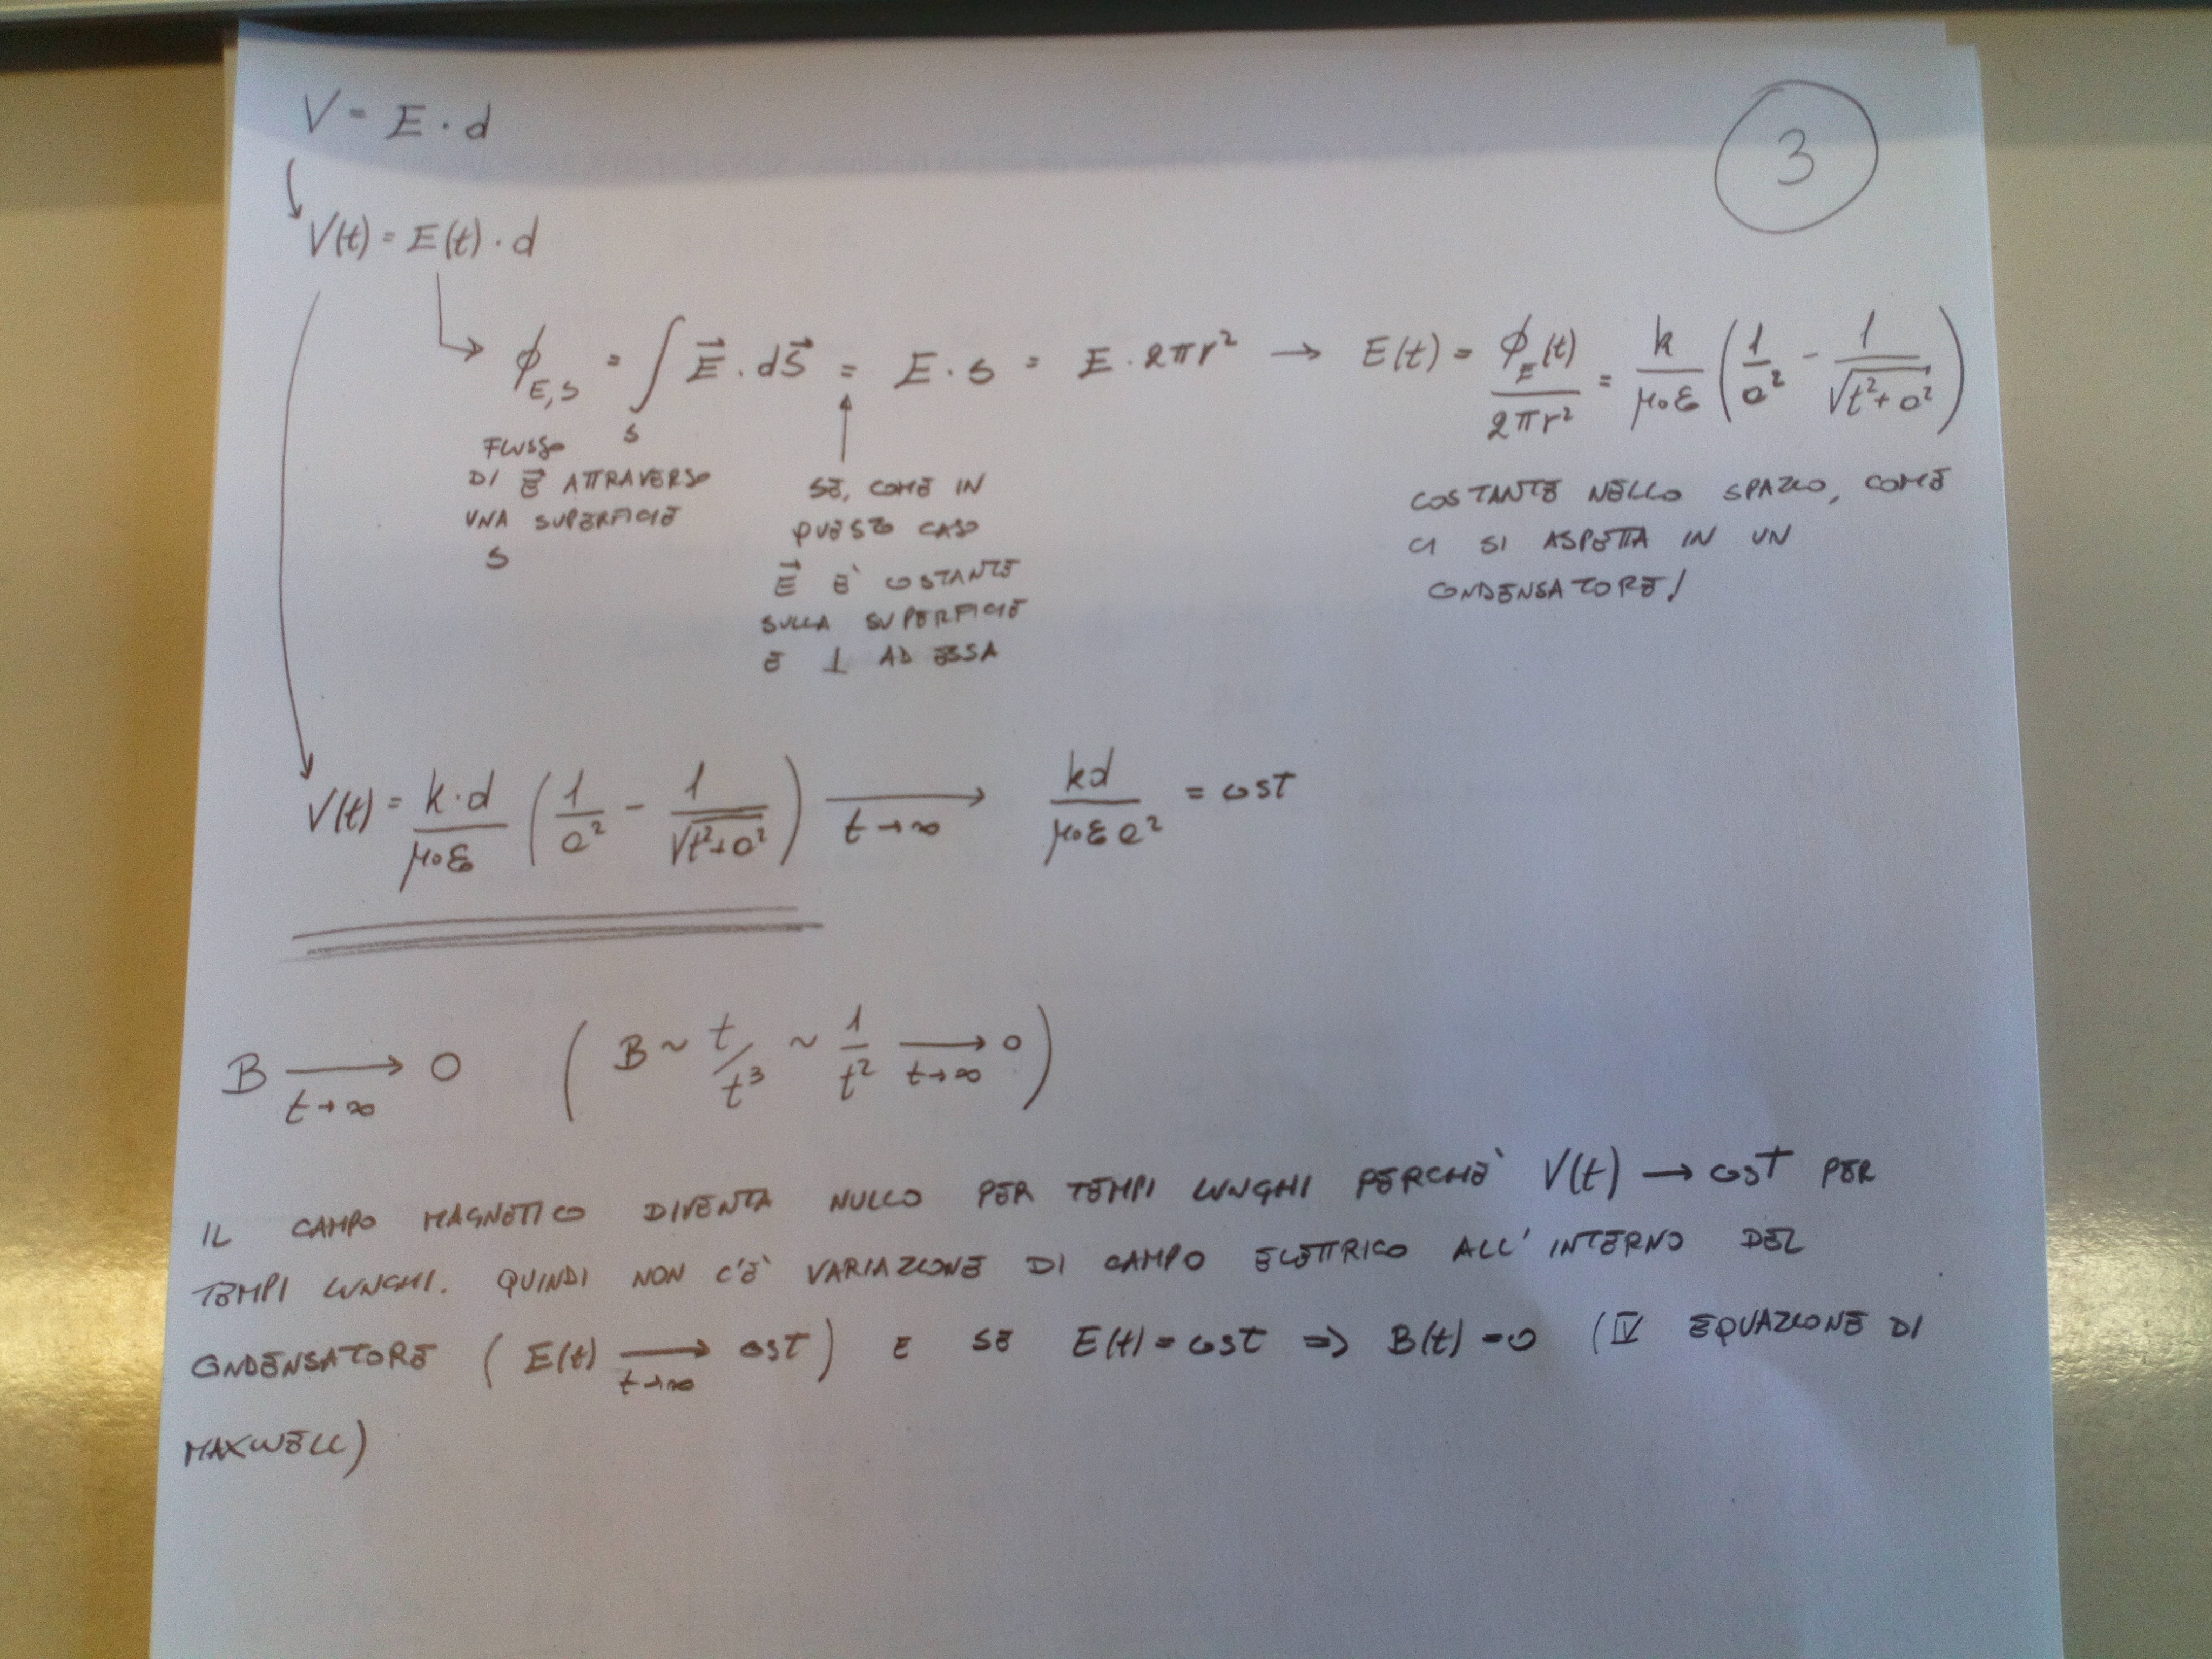 3
V = E · d
V(t) = E(t) · d
ϕ_{E,S} = ∫_S E⃗ · dS⃗ = E · S = E · 2πr² → E(t) = ϕ_E(t) / 2πr² = k / μ₀ε₀ ( 1/a² − 1/√(t²+a²) )
FLUSSO
DI E⃗ ATTRAVERSO
UNA SUPERFICIE
S
SE, COME IN
QUESTO CASO
E⃗ È COSTANTE
SULLA SUPERFICIE
E ⊥ AD ESSA
COSTANTE NELLO SPAZIO, COME
CI SI ASPETTA IN UN
CONDENSATORE!
V(t) = k·d / μ₀ε₀ ( 1/a² − 1/√(t²+a²) ) ⟶ t→∞ kd / μ₀ε₀a² = cost
B ⟶ t→∞ 0 ( B ~ t/t³ ~ 1/t² ⟶ t→∞ 0 )
IL CAMPO MAGNETICO DIVENTA NULLO PER TEMPI LUNGHI PERCHÈ V(t) → cost PER
TEMPI LUNGHI. QUINDI NON C'È VARIAZIONE DI CAMPO ELETTRICO ALL'INTERNO DEL
CONDENSATORE ( E(t) ⟶ t→∞ cost ) E SE E(t) = cost ⇒ B(t) = 0 (IV EQUAZIONE DI
MAXWELL)